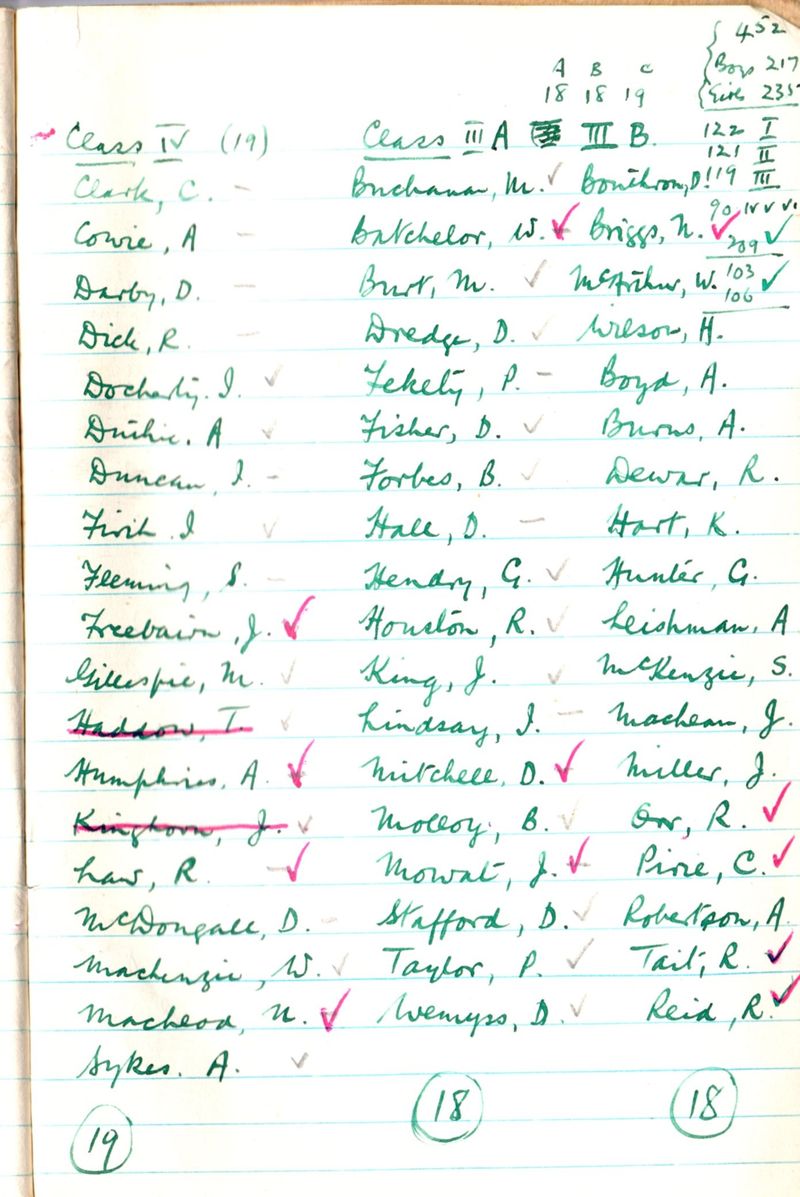 452
Boys 217
Girls 235
A B C
18 18 19
122 I
121 II
119 III
90 IV V VI
209
103
106
Class IV (19)
Clark, C.
Cowie, A
Darby, D.
Dick, R.
Docherty. I.
Duthie. A
Duncan, I.
Firth. I
Fleming, S.
Freebairn, J.
Gillespie, M.
Haddow, T.
Humphries, A.
Kinghorn, J.
Law, R.
McDougall, D.
Mackenzie, W.
Macleod, N.
Sykes. A.
19
Class III A
Buchanan, M.
Batchelor, W.
Burt, M.
Dredge, D.
Fekety, P.
Fisher, D.
Forbes, B.
Hall, D.
Hendry, G.
Houston, R.
King, J.
Lindsay, I.
Mitchell, D.
Molloy, B.
Mowat, J.
Stafford, D.
Taylor, P.
Wemyss, D.
18
III B.
Bonthron, D.
Briggs, N.
McArthur, W.
Wilson, H.
Boyd, A.
Burns, A.
Dewar, R.
Hart, K.
Hunter, G.
Leishman, A
McKenzie, S.
Maclean, J.
Miller, J.
Orr, R.
Pirie, C.
Robertson, A
Tait, R.
Reid, R.
18